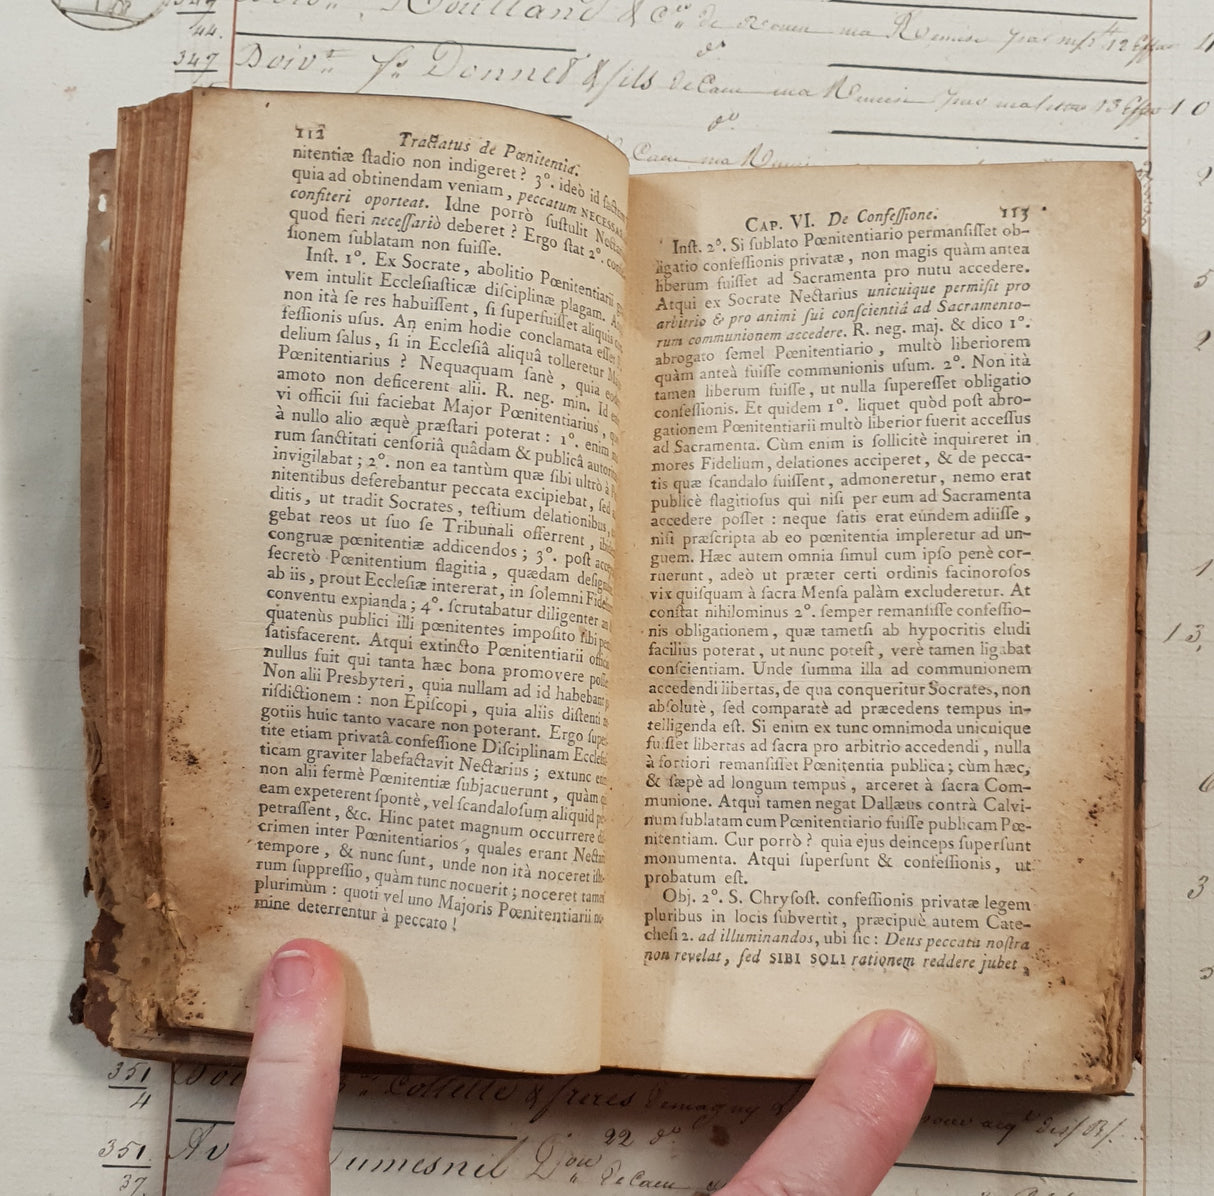 347
44.
347
Donnet & fils
112 Tractatus de Pœnitentiâ.
nitentiæ ſtadio non indigeret ? 3°. ideò id
quia ad obtinendam veniam , peccatum
confiteri oporteat. Idne porrò ſuſtulit
quod fieri neceſſariò deberet ? Ergo ſtat 2°.
ſionem ſublatam non fuiſſe.
Inſt. 1°. Ex Socrate , abolitio Pœnitentiarii
vem intulit Eccleſiaſticæ diſciplinæ plagam.
non ità ſe res habuiſſent , ſi ſuperfuiſſet aliquis
feſſionis uſus. An enim hodie conclamata eſſet
delium ſalus , ſi in Eccleſiâ aliquâ tolleretur
Pœnitentiarius ? Nequaquam ſanè , quia
amoto non deficerent alii. R. neg. min. Id
vi officii ſui faciebat Major Pœnitentiarius ,
à nullo alio æquè præſtari poterat : 1°. enim
rum ſanctitati cenſoriâ quâdam & publicâ
invigilabat ; 2°. non ea tantùm quæ ſibi ultrò à
nitentibus deferebantur peccata excipiebat , ſed
ditis , ut tradit Socrates , teſtium delationibus,
gebat reos ut ſuo ſe Tribunali offerrent ,
congruæ pœnitentiæ addicendos ; 3°. poſt
ſecretò Pœnitentium flagitia , quædam
ab iis , prout Eccleſiæ intererat, in ſolemni
conventu expianda ; 4°. ſcrutabatur diligenter
quatenùs publici illi pœnitentes impoſito ſibi
ſatisfacerent. Atqui extincto Pœnitentiarii
nullus fuit qui tanta hæc bona promovere
Non alii Presbyteri , quia nullam ad id
riſdictionem : non Epiſcopi , quia aliis diſtenti
gotiis huic tanto vacare non poterant. Ergo
tite etiam privatâ confeſſione Diſciplinam
ticam graviter labefactavit Nectarius ; extunc
non alii fermè Pœnitentiæ ſubjacuerunt , quàm
eam expeterent ſpontè, vel ſcandaloſum aliquid
petraſſent , &c. Hinc patet magnum occurrere
crimen inter Pœnitentiarios , quales erant
tempore , & nunc ſunt, unde non ità noceret
rum ſuppreſſio, quàm tunc nocuerit ; noceret
plurimùm : quoti vel uno Majoris Pœnitentiarii
mine deterrentur à peccato !
CAP. VI. De Confeſſione. 113
Inſt. 2°. Si ſublato Pœnitentiario permanſiſſet ob-
ligatio confeſſionis privatæ , non magis quàm antea
liberum fuiſſet ad Sacramenta pro nutu accedere.
Atqui ex Socrate Nectarius unicuique permiſit pro
arbitrio & pro animi ſui conſcientiâ ad Sacramento-
rum communionem accedere. R. neg. maj. & dico 1°.
abrogato ſemel Pœnitentiario , multò liberiorem
quàm anteà fuiſſe communionis uſum. 2°. Non ità
tamen liberum fuiſſe , ut nulla ſupereſſet obligatio
confeſſionis. Et quidem 1°. liquet quòd poſt abro-
gationem Pœnitentiarii multò liberior fuerit acceſſus
ad Sacramenta. Cùm enim is ſollicitè inquireret in
mores Fidelium , delationes acciperet , & de pecca-
tis quæ ſcandalo fuiſſent , admoneretur, nemo erat
publicè flagitioſus qui niſi per eum ad Sacramenta
accedere poſſet : neque ſatis erat eundem adiiſſe ,
niſi præſcripta ab eo pœnitentia impleretur ad un-
guem. Hæc autem omnia ſimul cum ipſo penè cor-
ruerunt , adeò ut præter certi ordinis facinoroſos
vix quiſquam à ſacra Menſa palàm excluderetur. At
conſtat nihilominus 2°. ſemper remanſiſſe confeſſio-
nis obligationem , quæ tametſi ab hypocritis eludi
facilius poterat, ut nunc poteſt , verè tamen ligabat
conſcientiam. Unde ſumma illa ad communionem
accedendi libertas, de qua conqueritur Socrates, non
abſolutè , ſed comparatè ad præcedens tempus in-
telligenda eſt. Si enim ex tunc omnimoda unicuique
fuiſſet libertas ad ſacra pro arbitrio accedendi , nulla
à fortiori remanſiſſet Pœnitentia publica ; cùm hæc,
& ſæpè ad longum tempus , arceret à ſacra Com-
munione. Atqui tamen negat Dallæus contrà Calvi-
num ſublatam cum Pœnitentiario fuiſſe publicam Pœ-
nitentiam. Cur porrò ? quia ejus deinceps ſuperſunt
monumenta. Atqui ſuperſunt & confeſſionis , ut
probatum eſt.
Obj. 2°. S. Chryſoſt. confeſſionis privatæ legem
pluribus in locis ſubvertit , præcipuè autem Cate-
cheſi 2. ad illuminandos, ubi ſic : Deus peccata noſtra
non revelat, ſed SIBI SOLI rationem reddere jubet ,
351
4
Collette & freres
351
37.
22 do